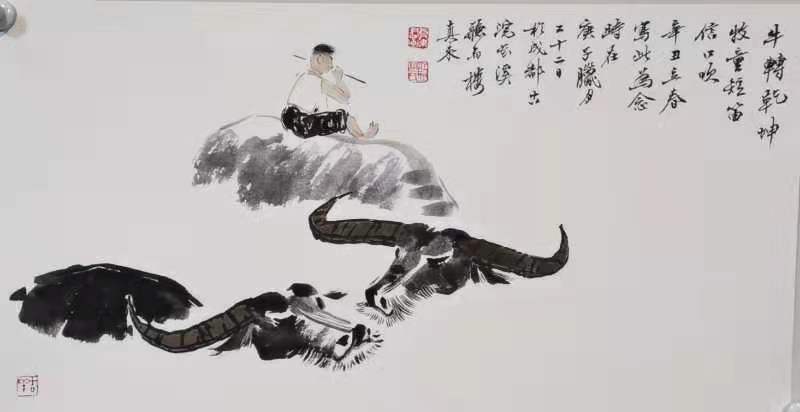 牛轉乾坤
牧童短笛
信口吹
辛丑立春
寫此為念
時在
庚子臘月
二十二日
於成都古
浣花溪
樓
真